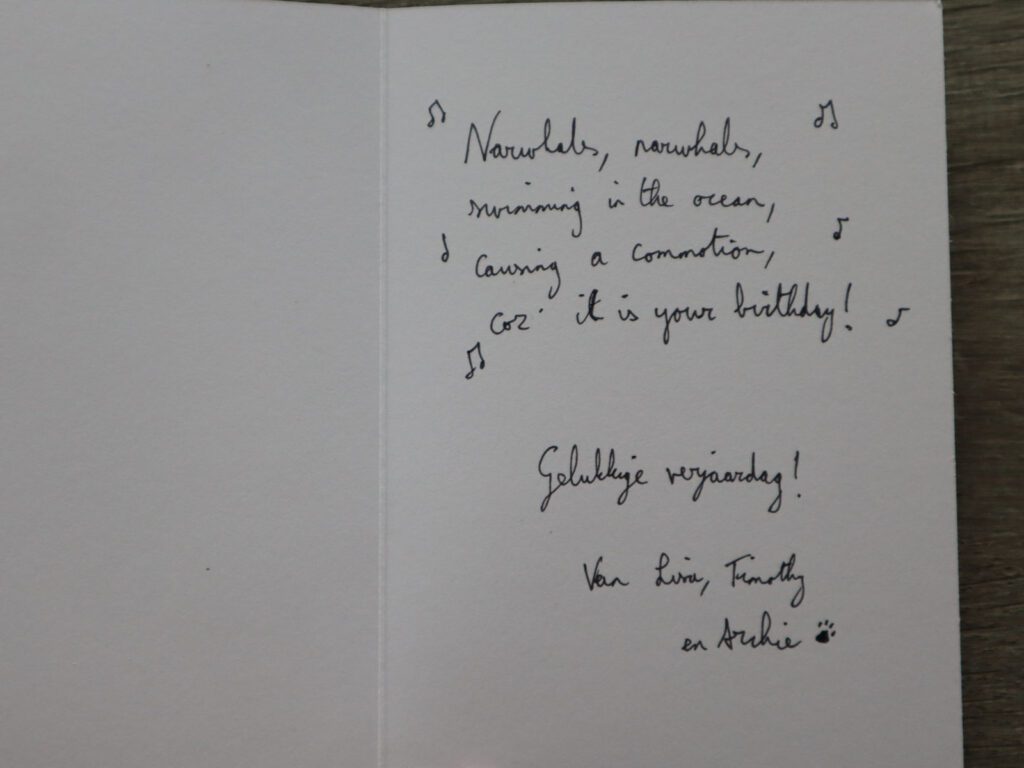 Narwhales, narwhales,
swimming in the ocean,
causing a commotion,
coz' it is your birthday!
Gelukkige verjaardag!
Van Lisa, Timothy
en Archie